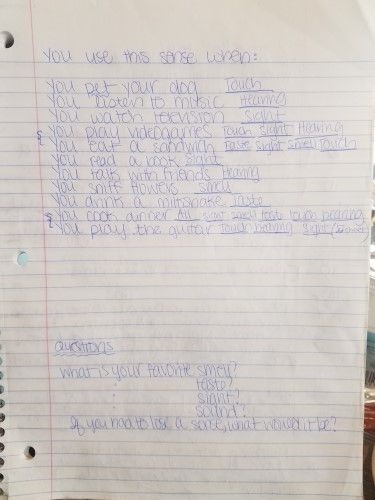 You use this sense when:
You pet your dog Touch
You listen to music Hearing
You watch television Sight
You play videogames Touch Sight Hearing
You eat a sandwich Taste Sight Smell Touch
You read a book Sight
You talk with friends Hearing
You sniff flowers Smell
You drink a milkshake Taste
You cook dinner All sight smell taste touch hearing
You play the guitar Touch hearing Sight
Questions
What is your favorite smell?
" taste?
" sight?
" sound?
If you had to lose a sense, what would it be?